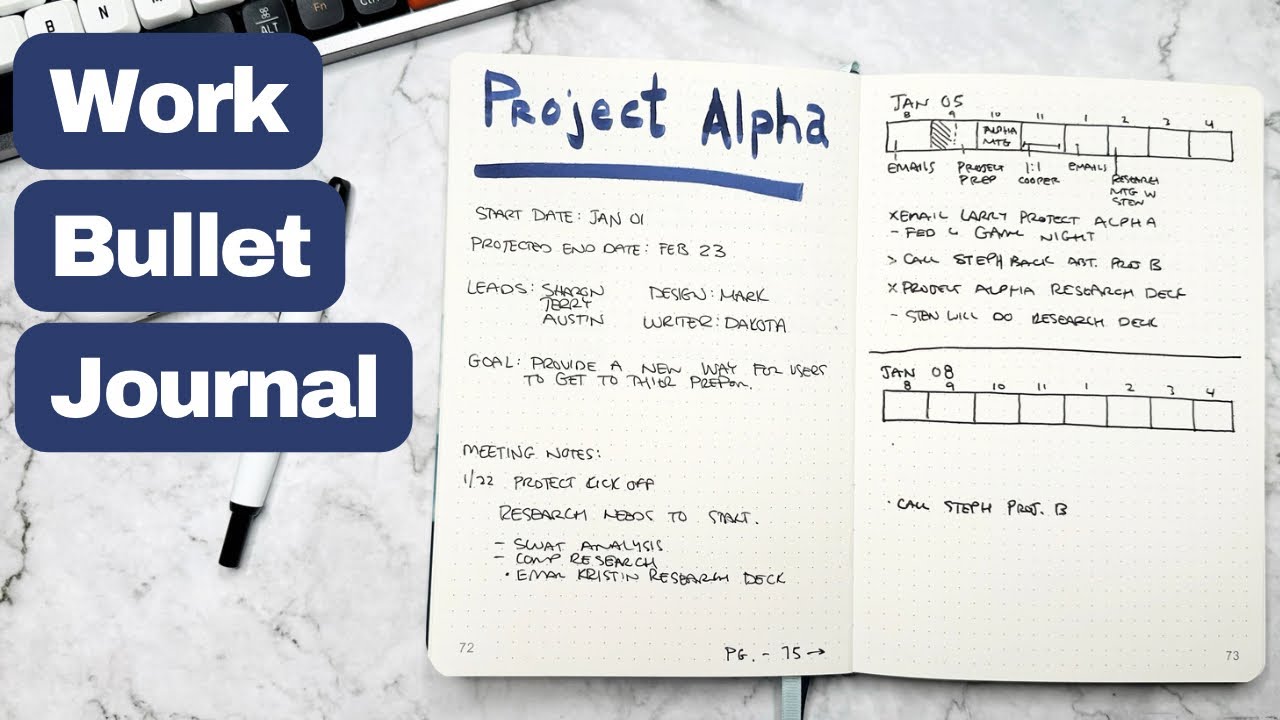 Work
Bullet
Journal
B N M
⌘
ALT
Fn
Ctrl
Project Alpha
START DATE: JAN 01
PROJECTED END DATE: FEB 23
LEADS: SHARON DESIGN: MARK
TERRY
AUSTIN WRITER: DAKOTA
GOAL: PROVIDE A NEW WAY FOR USERS
TO GET TO
MEETING NOTES:
1/22 PROJECT KICK OFF
RESEARCH NEEDS TO START.
- SWAT ANALYSIS
- COMP RESEARCH
• EMAIL KRISTIN RESEARCH DECK
72
PG. - 75 →
JAN 05
8 9 10 11 1 2 3 4
ALPHA
MTG
EMAILS PROJECT 1:1 EMAILS RESEARCH
PREP COOPER MTG W
STEN
X EMAIL LARRY PROJECT ALPHA
- FED 4 GAME NIGHT
> CALL STEPH BACK ABT. PROJ B
X PROJECT ALPHA RESEARCH DECK
- STEN WILL DO RESEARCH DECK
JAN 08
8 9 10 11 1 2 3 4
• CALL STEPH PROJ. B
73